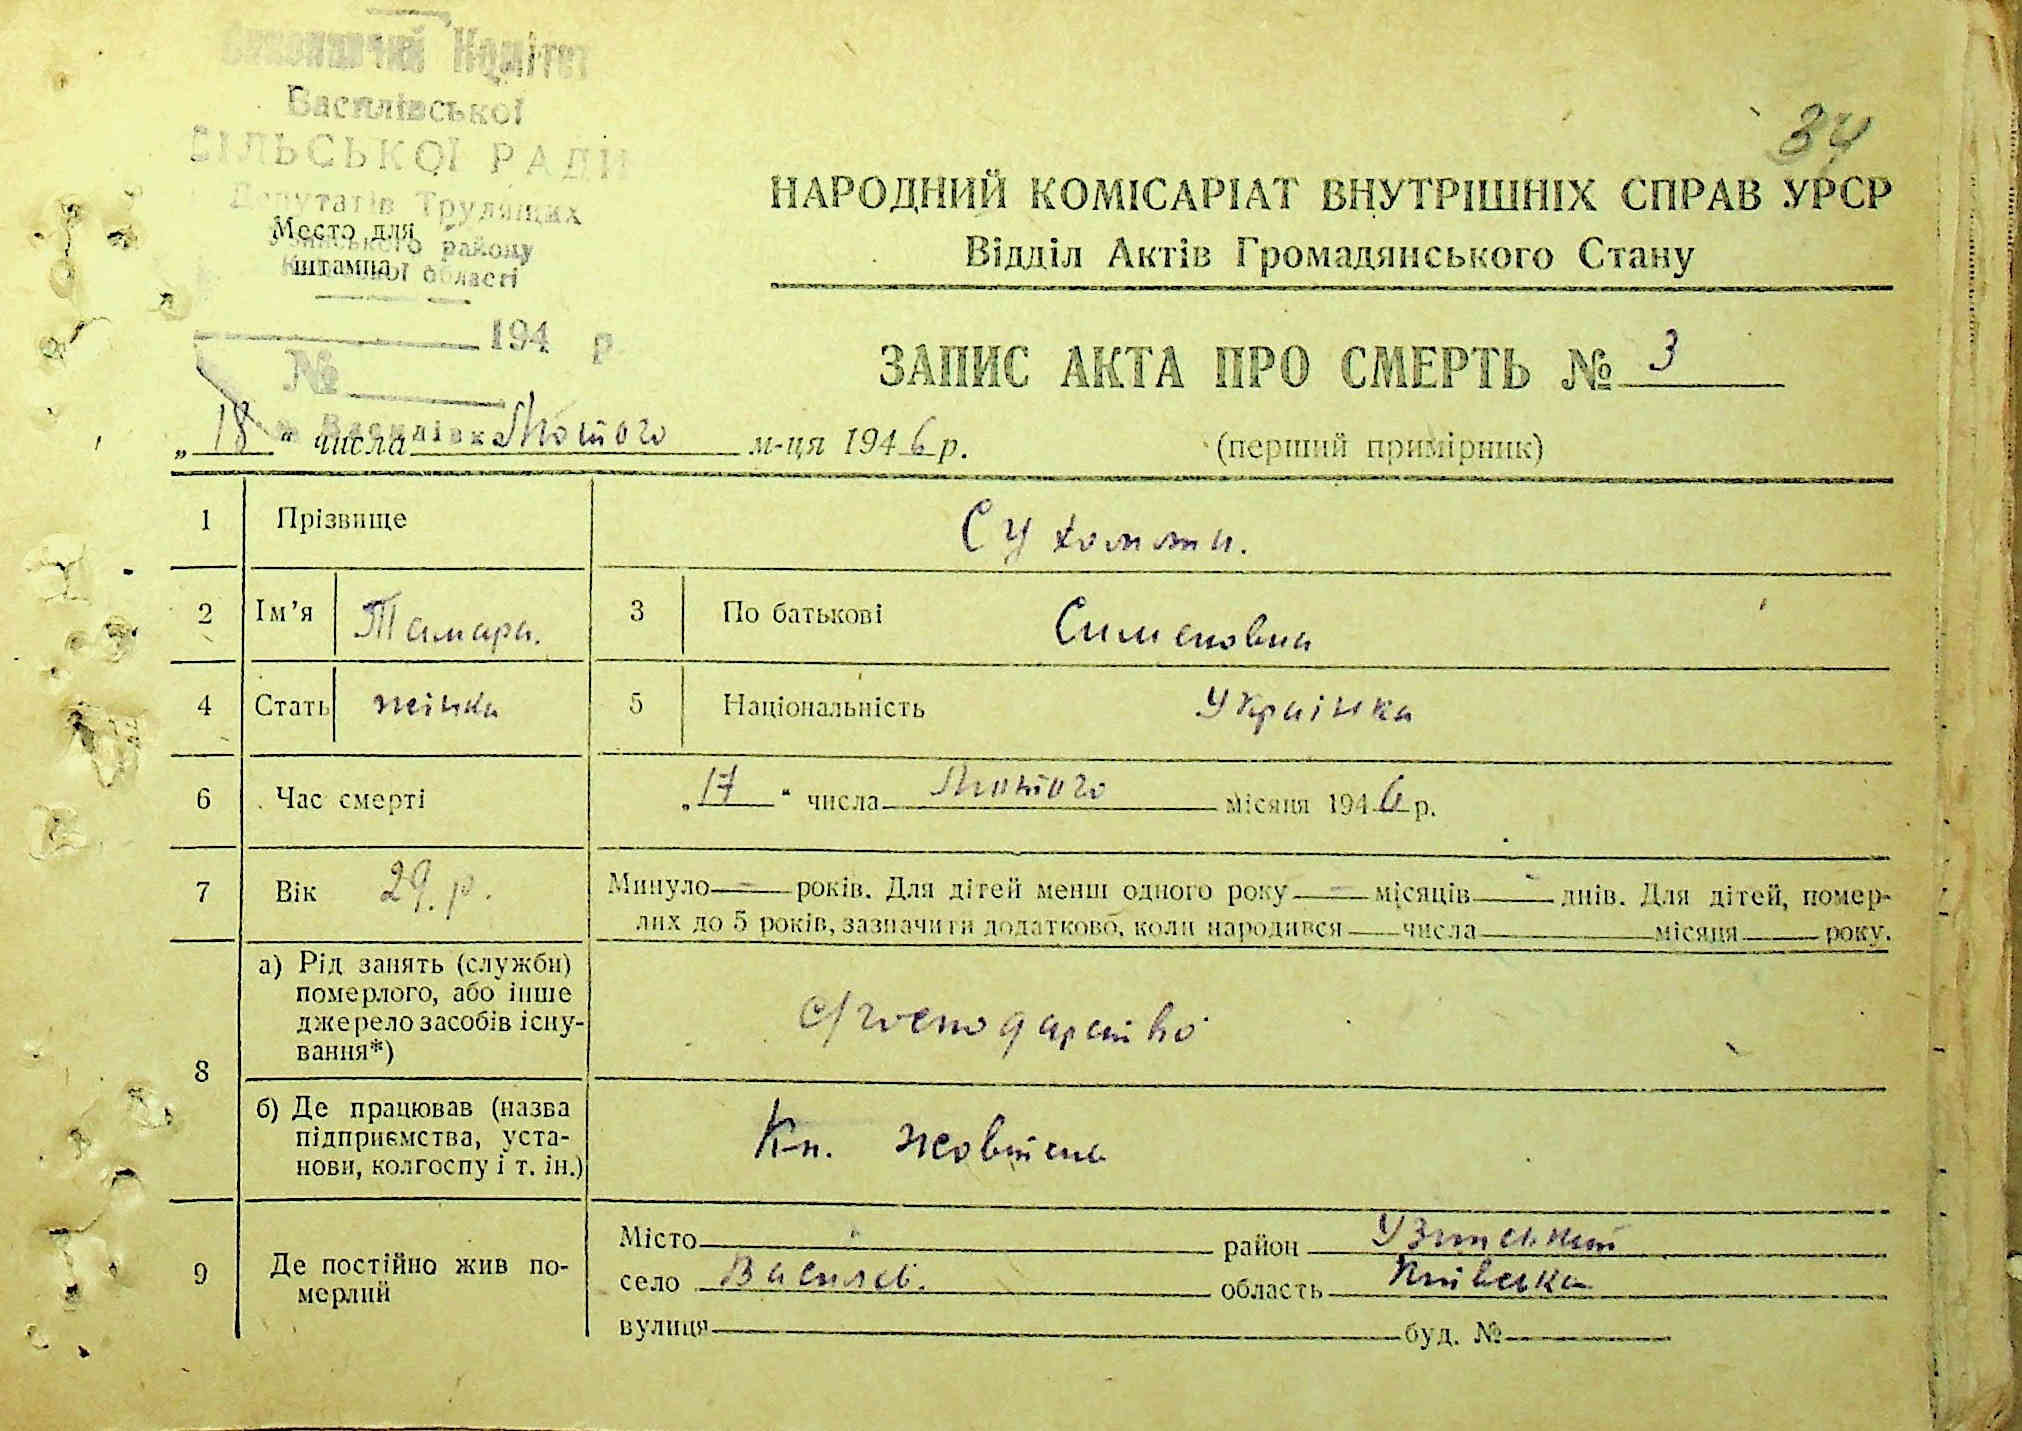 Виконавчий Комітет
Василівської
СІЛЬСЬКОЇ РАДИ
Депутатів Трудящих
Место для
району
штампа
області
34
НАРОДНИЙ КОМІСАРІАТ ВНУТРІШНІХ СПРАВ УРСР
Відділ Актів Громадянського Стану
194 р
№
ЗАПИС АКТА ПРО СМЕРТЬ № 3
(перший примірник)
с. Василівка
„18“ числа Лютого м-ця 1946 р.
1 Прізвище
2 Ім’я Тамара. 3 По батькові Сименовна
4 Стать жінка 5 Національність Українка
6 Час смерті „17“ числа Лютого місяця 1946 р.
7 Вік 29 р. Минуло — років. Для дітей менш одного року — місяців - днів. Для дітей, помер-
лих до 5 років, зазначити додатково, коли народився числа місяця року.
8 а) Рід занять (служби)
померлого, або інше
джерело засобів існу-
вання*)
с/господарство
б) Де працював (назва
підприємства, уста-
нови, колгоспу і т. ін.)
Кп. жовтень
9 Де постійно жив по-
мерлий
Місто район Узинський
село Василів. область Київська
вулиця буд. №